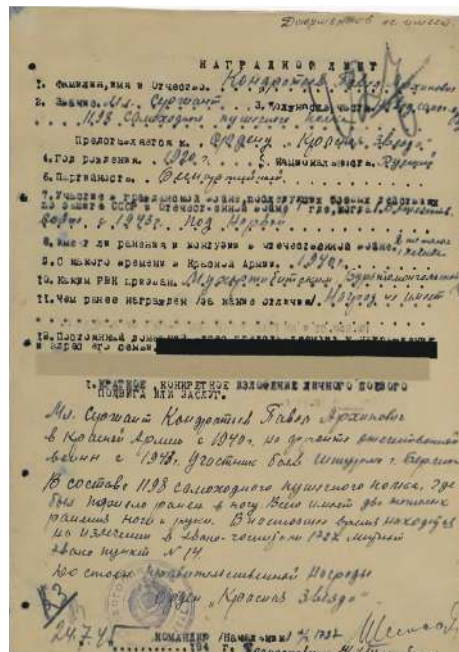 Документов не имеет.
НАГРАДНОЙ ЛИСТ
1. Фамилия, имя и Отчество. Кондратьев Павел Архипович
2. Звание. Мл. Сержант 3.
1198 самоходного пушечного полка
Представляется к. ордену "Красная Звезда"
4. Год рождения. 1920 г. 5. Национальность. Русский
6. Партийность. Беспартийный
7. Участие в гражданской войне, последующих боевых действиях
по защите СССР отечественной войне где, когда.
с 1943 г. под
8. Имеет ли ранения и контузии в отечественной войне. 2
9. С какого времени в Красной Армии. 1940 г.
10. Каким РВК призван. Мухоршибирским
11. Чем ранее награжден /за какие отличия/. Наград не имеет
12. Постоянный домашний
и адрес его семьи.
1. КРАТКОЕ КОНКРЕТНОЕ ИЗЛОЖЕНИЕ ЛИЧНОГО БОЕВОГО
ПОДВИГА ИЛИ ЗАСЛУГ.
Мл. Сержант Кондратьев Павел Архипович
в Красной Армии с 1940 г. на фронте отечественной
войны с 1943 г. Участник боев штурма г. Берлин
В составе 1198 самоходного пушечного полка, где
был ранен в ногу. Всего имеет два
ранения ноги и руки. В настоящее время находится
на излечении в госпитале 1727
пункт N 14
Достоин правительственной Награды
Орден "Красная Звезда"
24.7.45 КОМАНДИР /Начальник/
194 г.